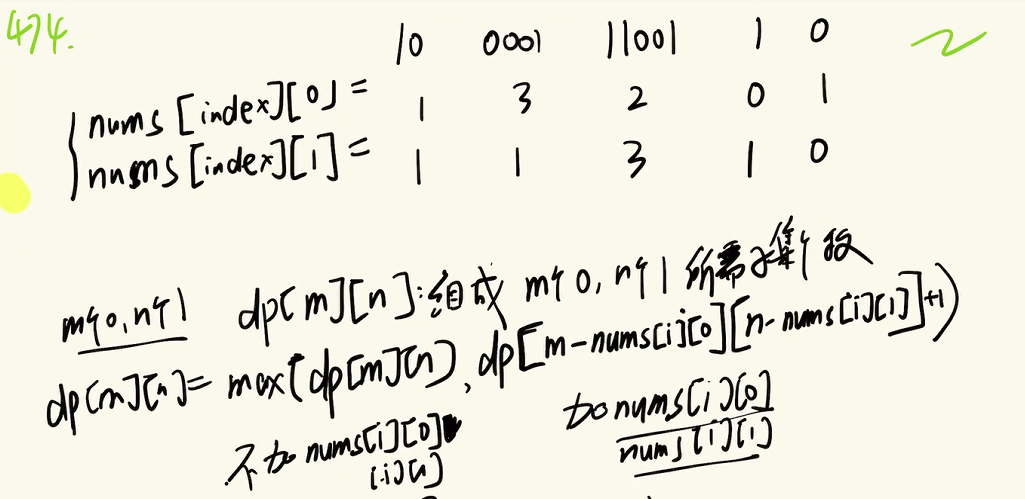 474.
10 0001 11001 1 0
nums[index][0]= 1 3 2 0 1
nums[index][1]= 1 1 3 1 0
m个0,n个1 dp[m][n]:组成 m个0,n个1 所需子集个数
dp[m][n]= max(dp[m][n],dp[m-nums[i][0][n-nums[i][1]]+1)
不加 nums[i][0] 加 nums[i][0]
[i][1] nums[i][1]